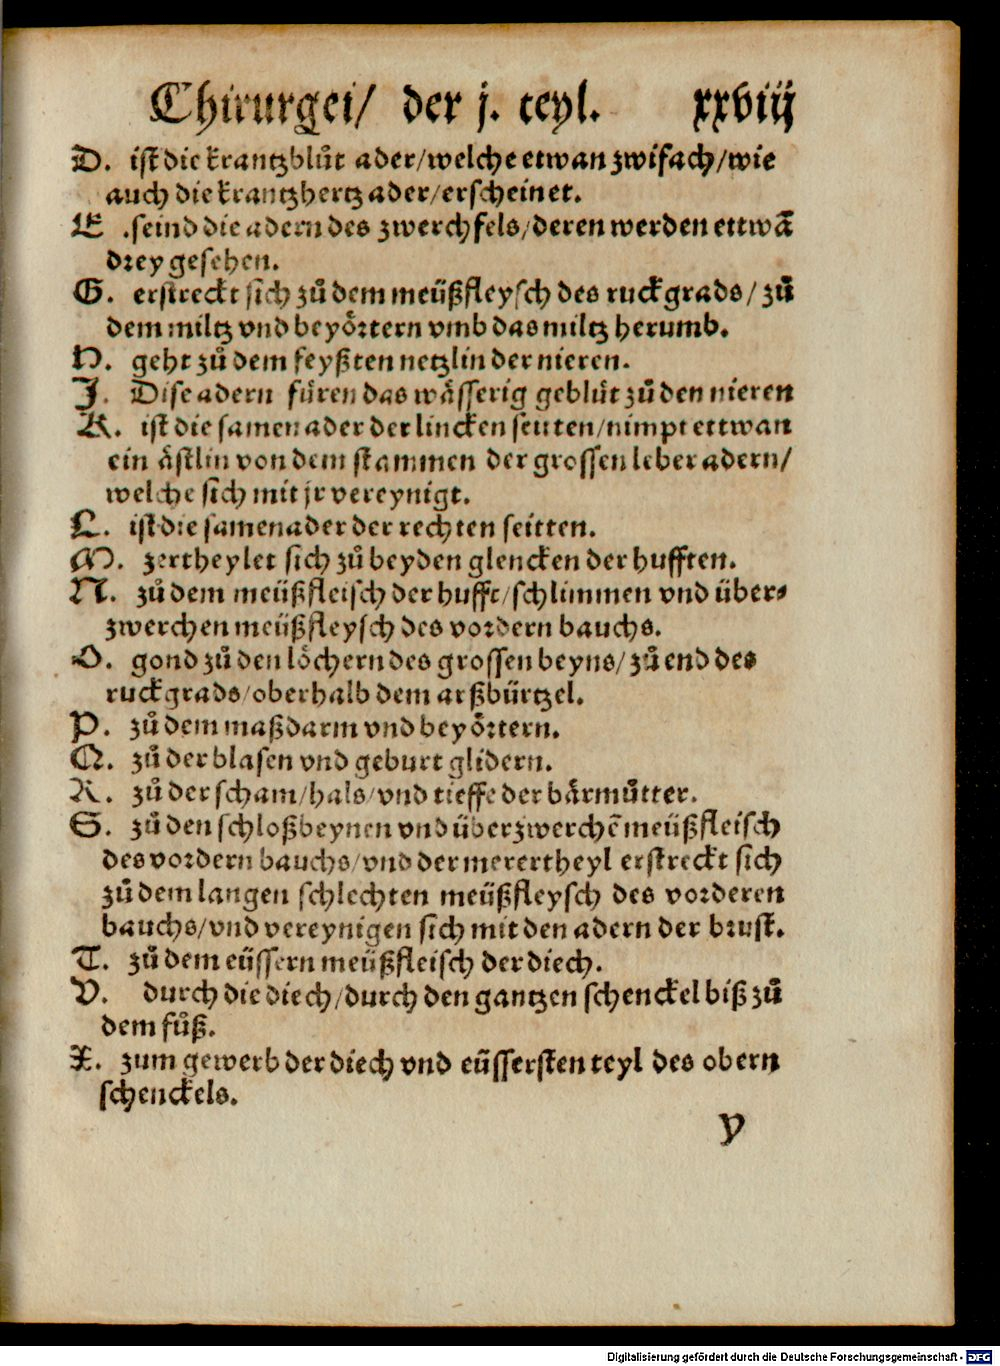 Chirurgei/ der j. teyl. xxviij
D. ist die krantzblůt ader/welche etwan zwifach/wie
auch die krantzhertz ader/erscheinet.
E .seind die adern des zwerchfels/deren werden ettwã
drey gesehen.
G. erstreckt sich zů dem meüßfleysch des ruckgrads/zů
dem miltz vnd beyoͤrtern vmb das miltz herumb.
H. geht zů dem feyßten netzlin der nieren.
J. Dise adern fuͤren das waͤsserig gebluͤt zů den nieren
K. ist die samen ader der lincken seitten/nimpt ettwan
ein aͤstlin von dem stammen der grossen leber adern/
welche sich mit jr vereynigt.
L. ist die samenader der rechten seitten.
M. zertheylet sich zů beyden glencken der hufften.
N. zů dem meüßfleisch der hufft/schlimmen vnd über⸗
zwerchen meüßfleysch des vordern bauchs.
O. gond zů den loͤchern des grossen beyns/zů end des
ruckgrads/oberhalb dem arßbürtzel.
P. zů dem maßdarm vnd beyoͤrtern.
Q. zů der blasen vnd geburt glidern.
R. zů der scham/hals/vnd tieffe der baͤrmůtter.
S. zů den schloßbeynen vnd überzwerchẽ meüßfleisch
des vordern bauchs/vnd der merertheyl erstreckt sich
zů dem langen schlechten meüßfleysch des vorderen
bauchs/vnd vereynigen sich mit den adern der brust.
T. zů dem eüssern meüßfleisch der diech.
V. durch die diech/durch den gantzen schenckel biß zů
dem fůß.
X. zum gewerb der diech vnd eüssersten teyl des obern
schenckels.
y
Digitalisierung gefördert durch die Deutsche Forschungsgemeinschaft - DFG